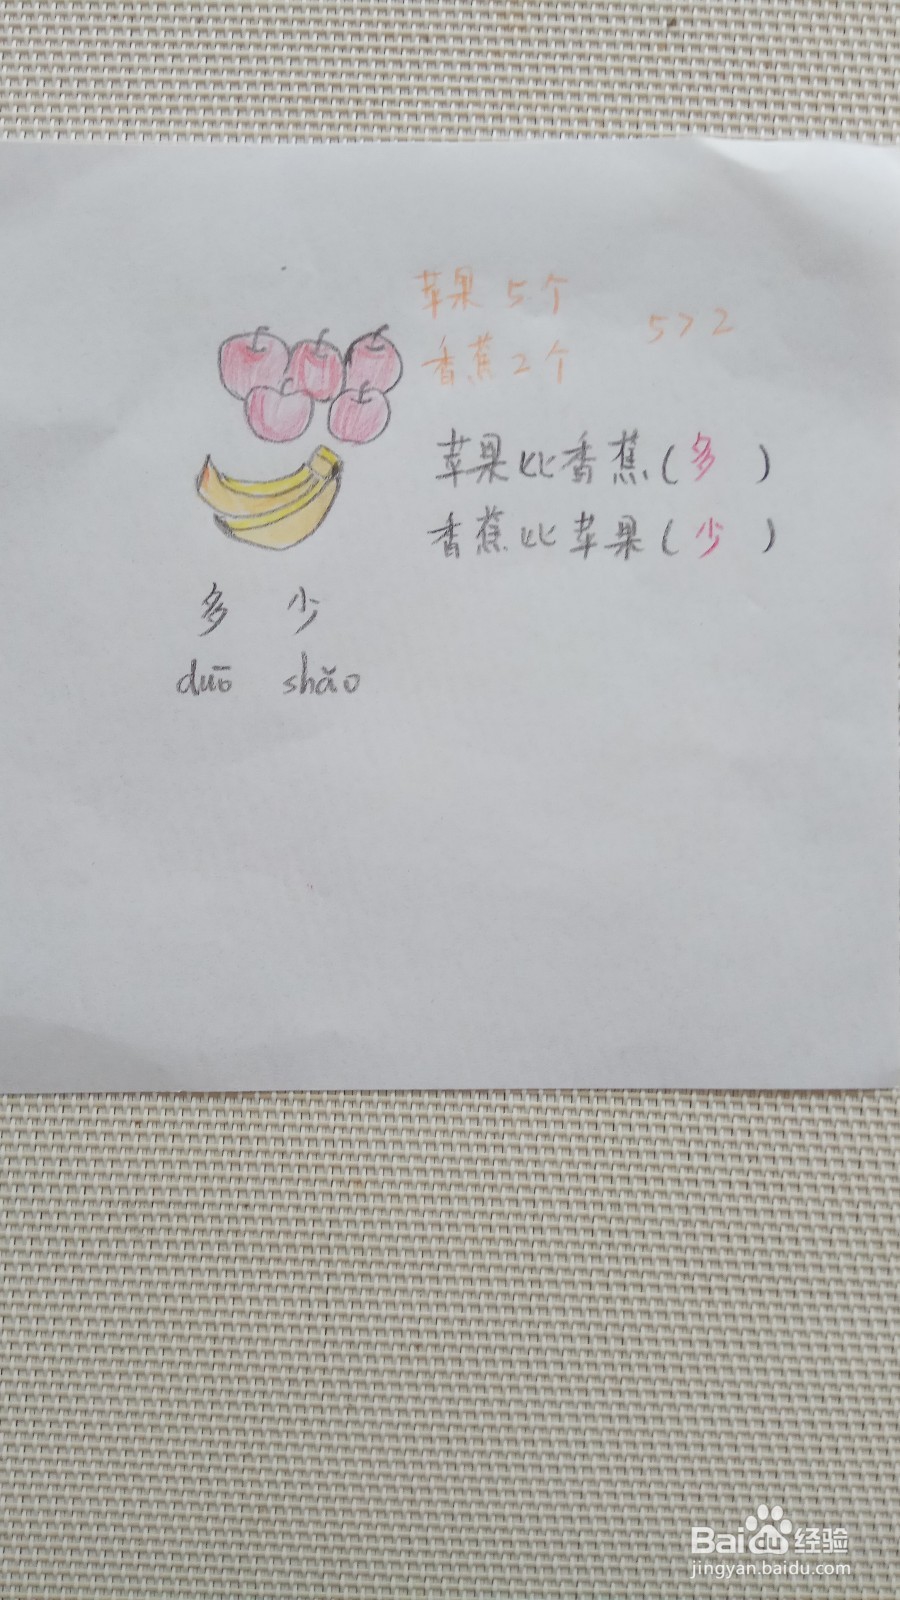 苹果 5个
香蕉 2个
5>2
苹果比香蕉(多 )
香蕉比苹果(少 )
多 少
duō shǎo
Bai du 经验
jingyan.baidu.com